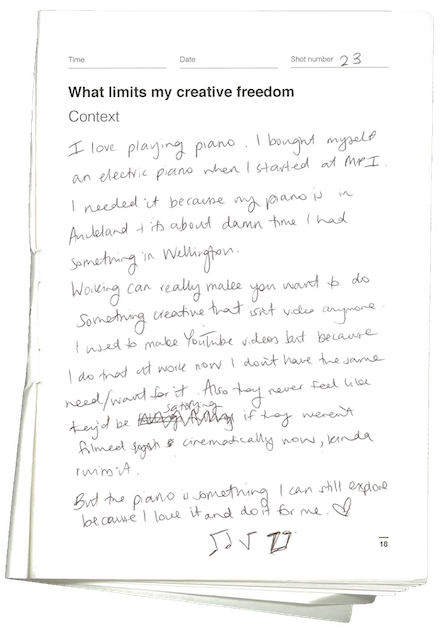 Time Date Shot number 23
What limits my creative freedom
Context
I love playing piano. I bought myself
an electric piano when I started at MPI.
I needed it because my piano is in
Auckland + its about damn time I had
something in Wellington.
Working can really make you want to do
Something creative that isn't video anymore.
I used to make YouTube videos but because
I do that at work now I don't have the same
need/want for it. Also they never feel like
they'd be satisfying if they weren't
filmed cinematically now, kinda
ruins it.
But the piano is something I can still explore
because I love it and do it for me. ♡
18